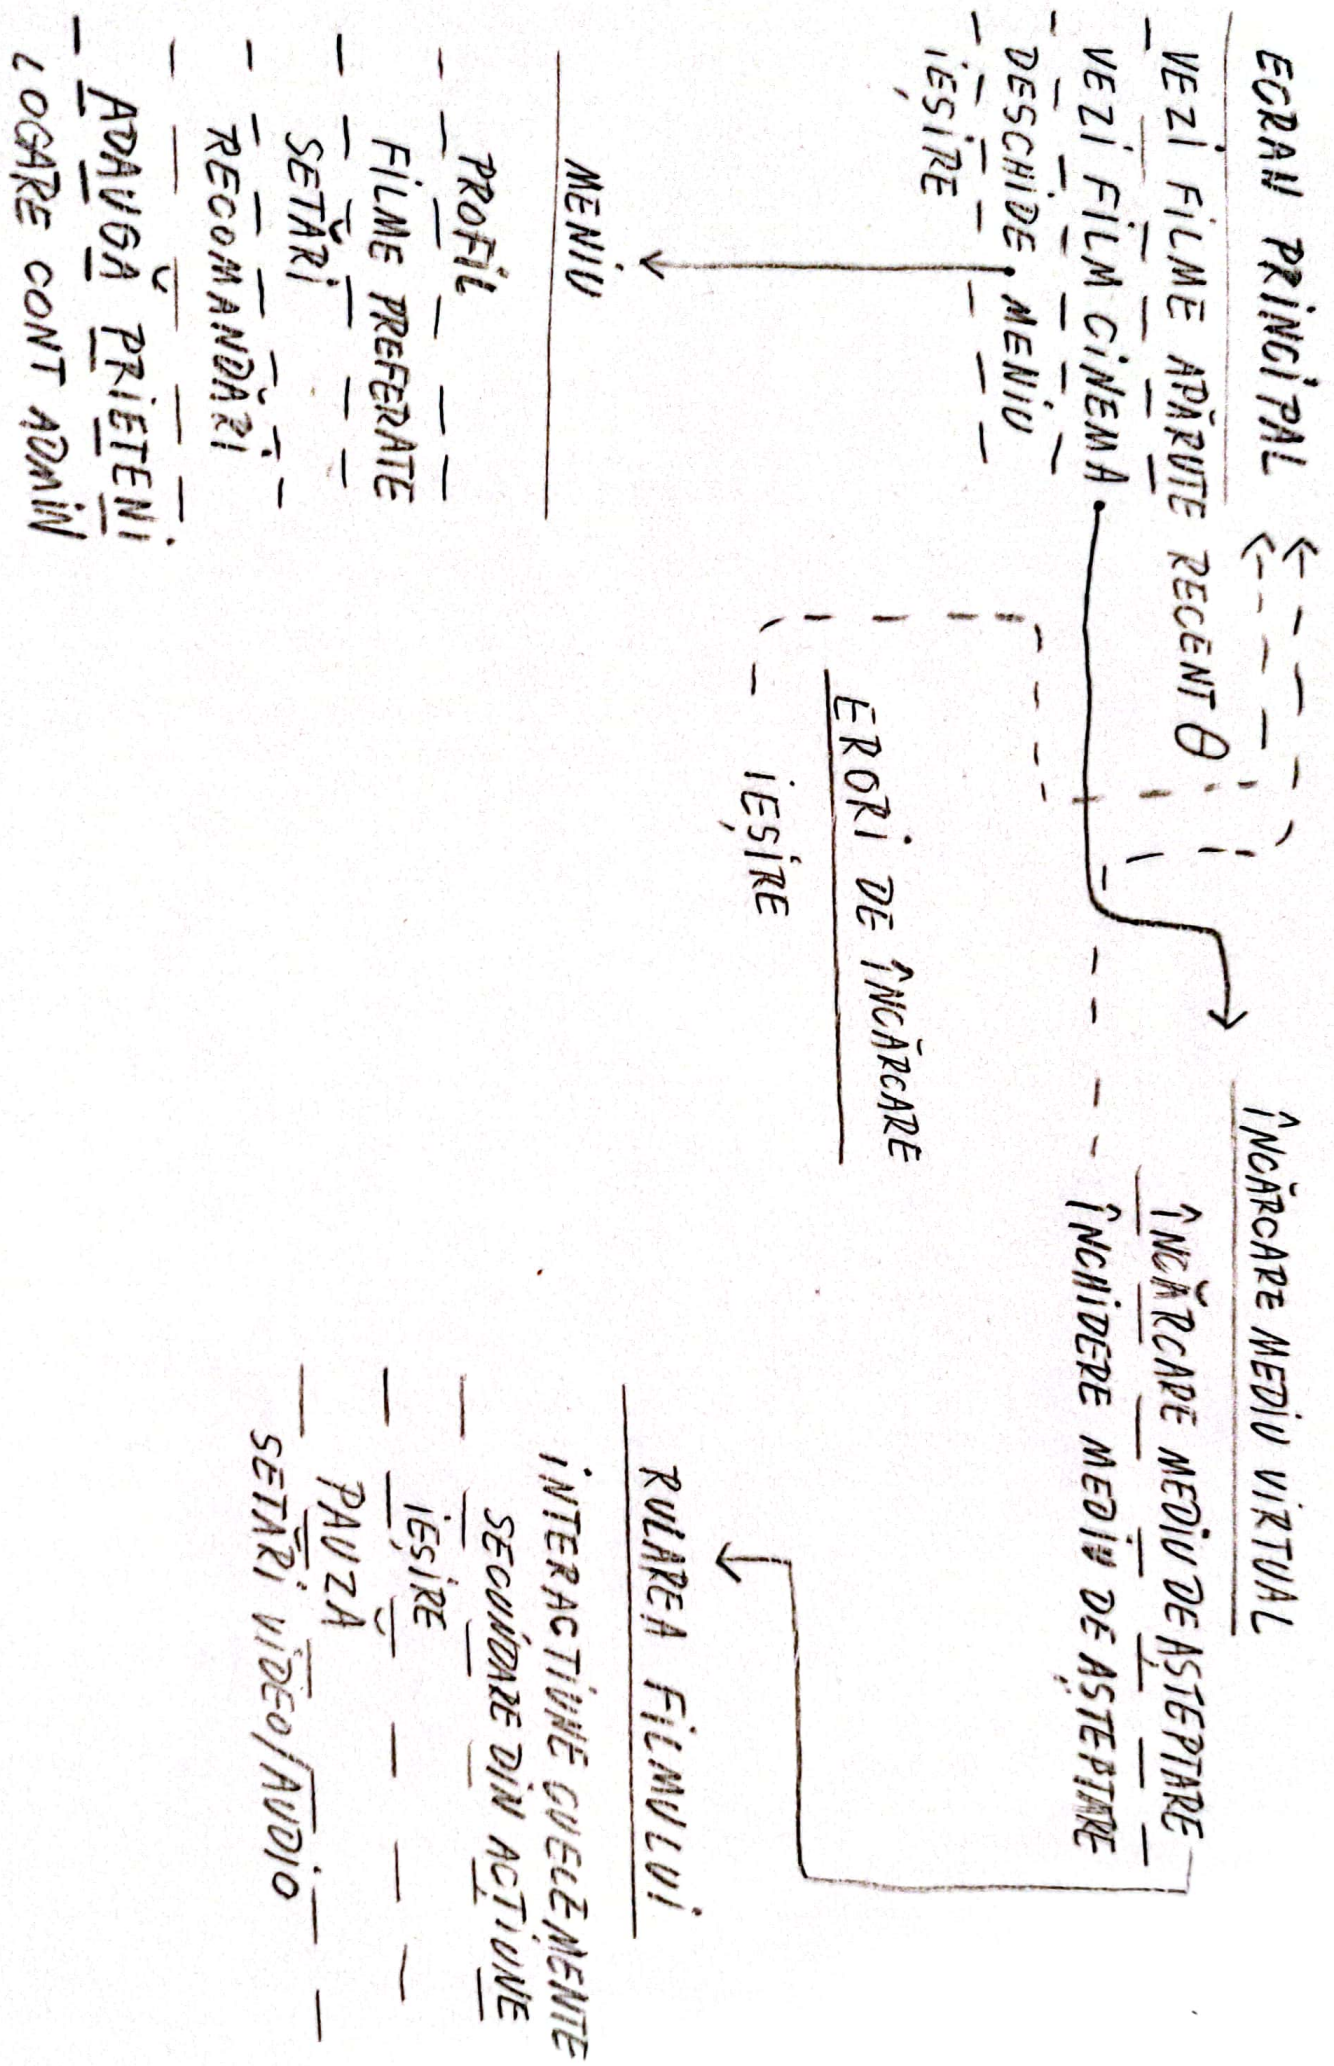 ECRAN PRINCIPAL
VEZI FILME APĂRUTE RECENT
VEZI FILM CINEMA
DESCHIDE MENIU
IEȘIRE
MENIU
PROFIL
FILME PREFERATE
SETĂRI
RECOMANDĂRI
ADAUGĂ PRIETENI
LOGARE CONT ADMIN
ERORI DE ÎNCĂRCARE
IEȘIRE
ÎNCĂRCARE MEDIU VIRTUAL
ÎNCĂRCARE MEDIU DE AȘTEPTARE
ÎNCHIDERE MEDIU DE AȘTEPTARE
RULAREA FILMULUI
INTERACȚIUNE CU ELEMENTE
SECUNDARE DIN ACȚIUNE
IEȘIRE
PAUZĂ
SETĂRI VIDEO/AUDIO